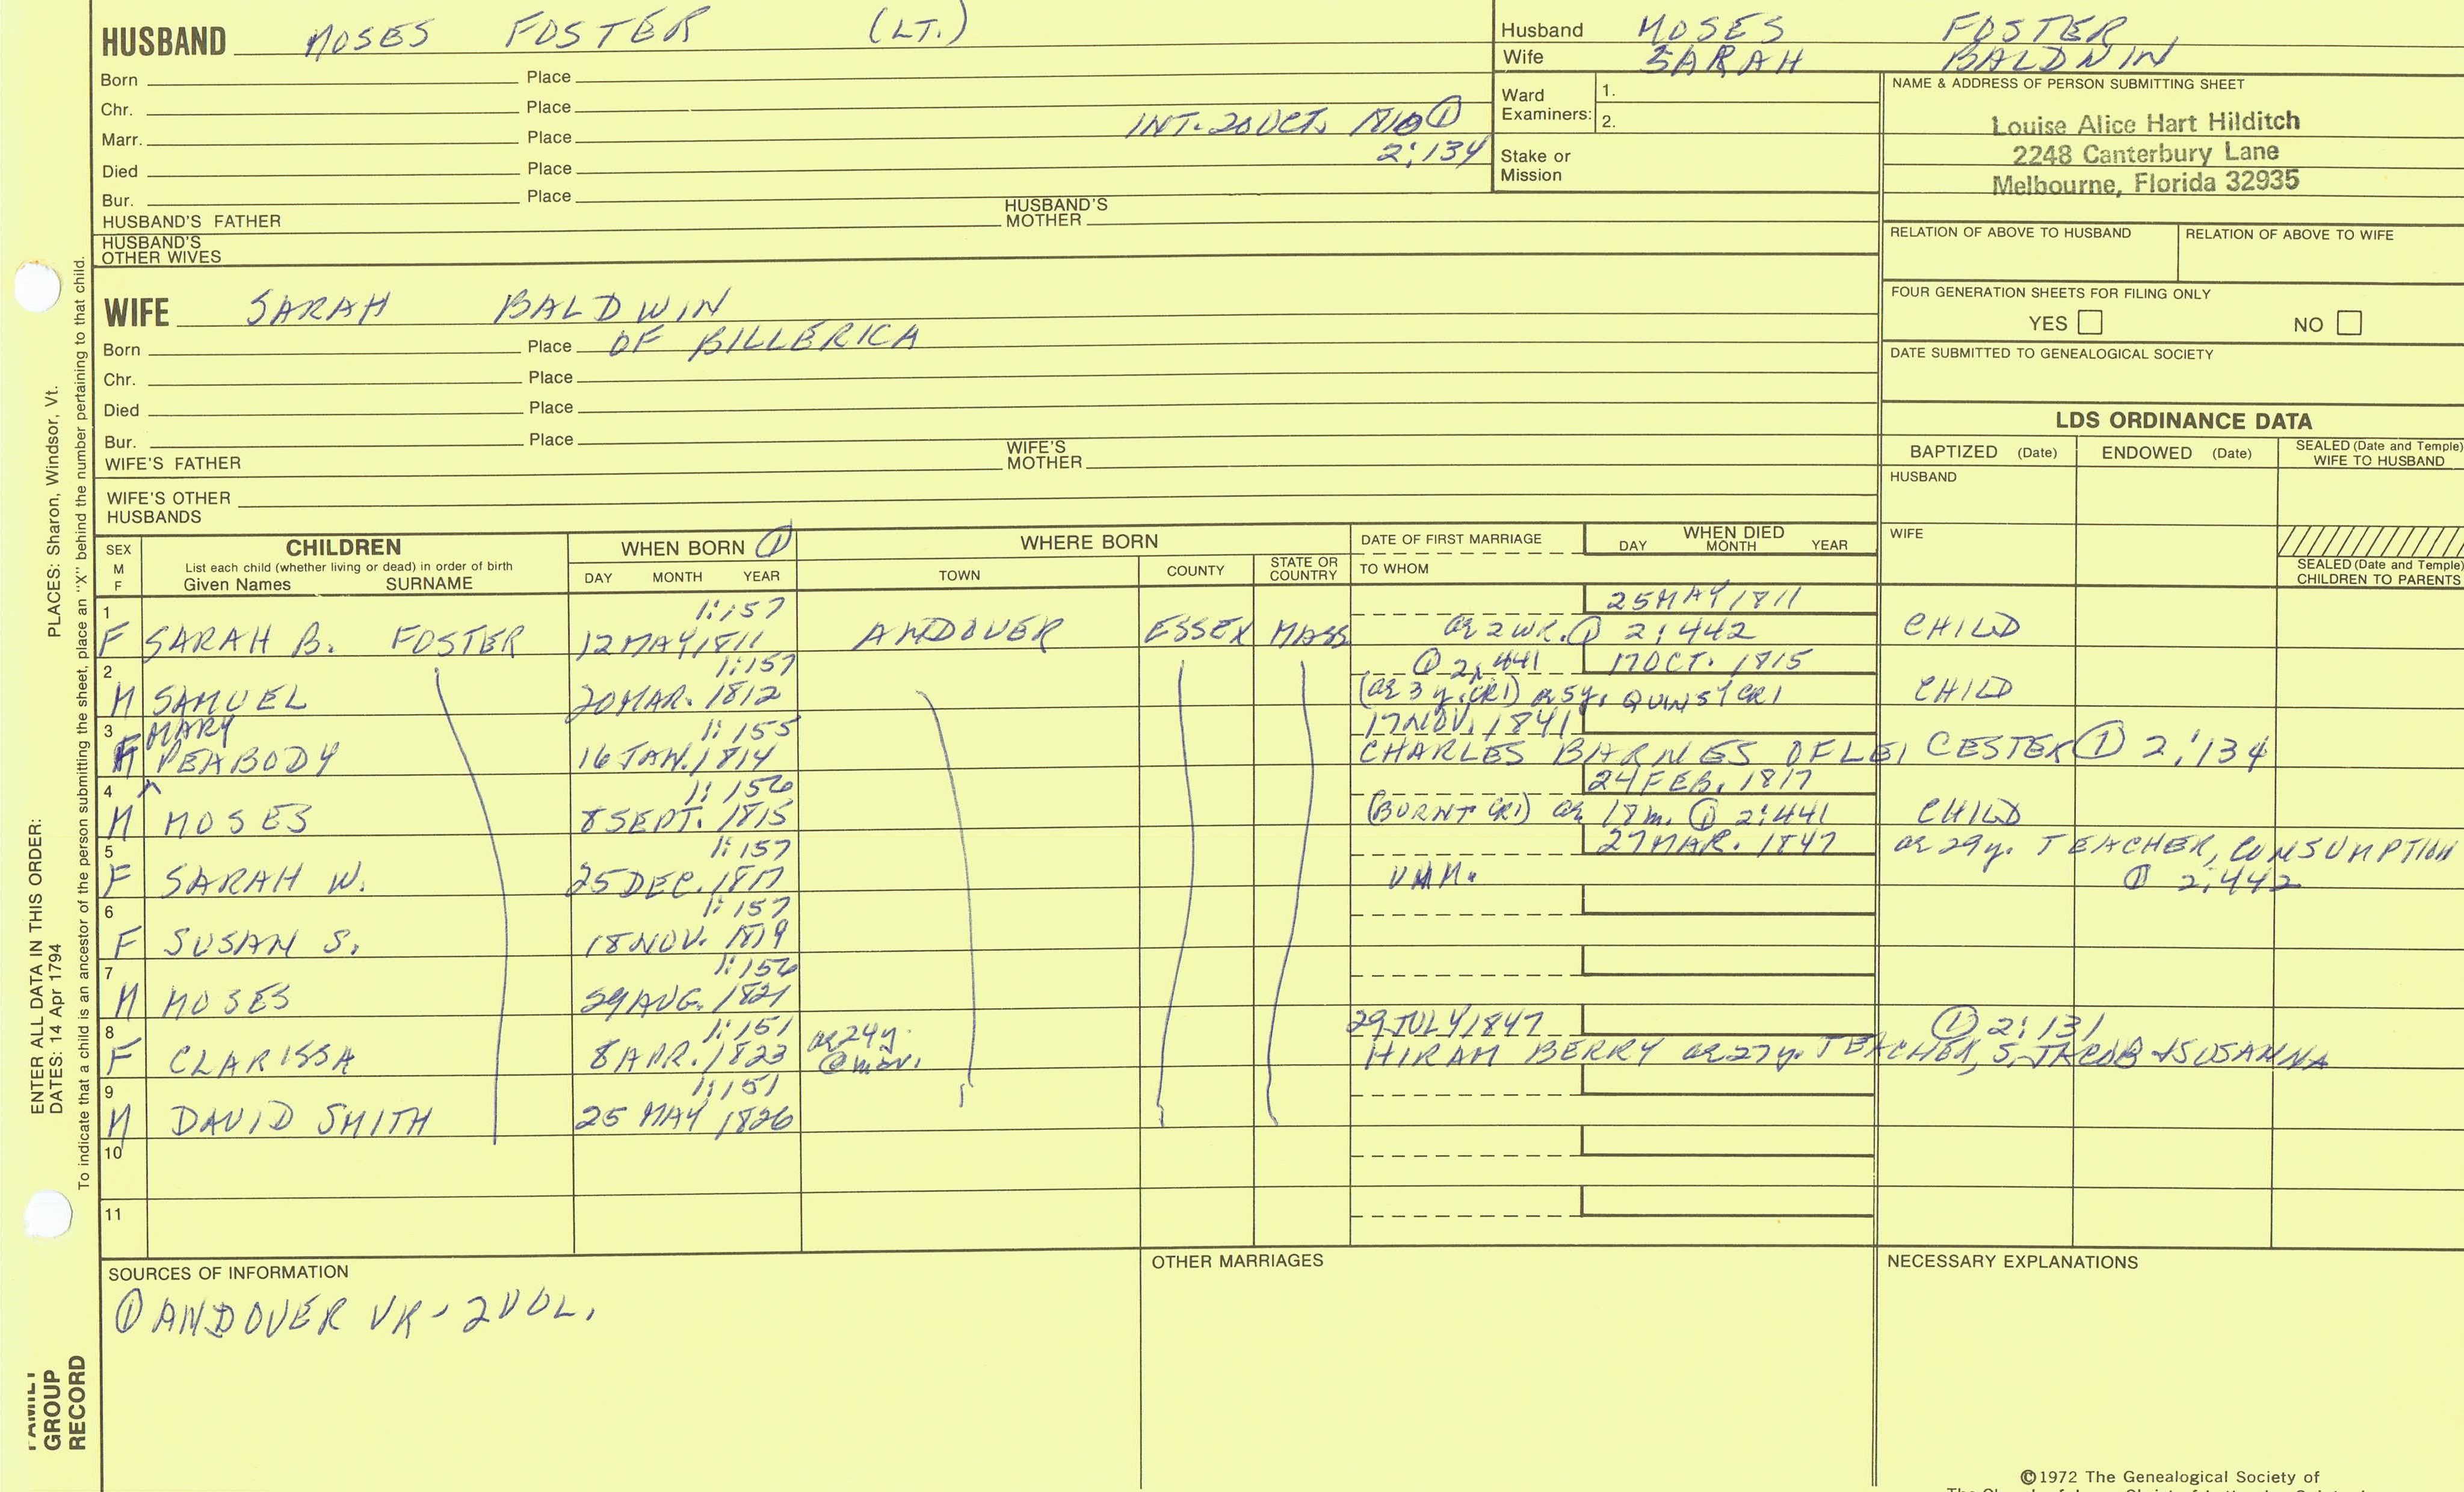 HUSBAND MOSES FOSTER (LT.)
Born Place
Chr. Place
Marr. Place INT. 20 OCT. 1810 ①
2:134
Died Place
Bur. Place
HUSBAND'S FATHER HUSBAND'S MOTHER
HUSBAND'S OTHER WIVES
Husband MOSES FOSTER
Wife SARAH BALDWIN
Ward Examiners: 1.
2.
Stake or Mission
NAME & ADDRESS OF PERSON SUBMITTING SHEET
Louise Alice Hart Hilditch
2248 Canterbury Lane
Melbourne, Florida 32935
RELATION OF ABOVE TO HUSBAND RELATION OF ABOVE TO WIFE
FOUR GENERATION SHEETS FOR FILING ONLY
YES NO
DATE SUBMITTED TO GENEALOGICAL SOCIETY
WIFE SARAH BALDWIN
Born Place OF BILLERICA
Chr. Place
Died Place
Bur. Place
WIFE'S FATHER WIFE'S MOTHER
WIFE'S OTHER HUSBANDS
LDS ORDINANCE DATA
BAPTIZED (Date) ENDOWED (Date) SEALED (Date and Temple) WIFE TO HUSBAND
HUSBAND
WIFE
SEALED (Date and Temple) CHILDREN TO PARENTS
SEX M F
CHILDREN
List each child (whether living or dead) in order of birth
Given Names SURNAME
WHEN BORN ①
DAY MONTH YEAR
WHERE BORN
TOWN COUNTY STATE OR COUNTRY
DATE OF FIRST MARRIAGE
TO WHOM
WHEN DIED
DAY MONTH YEAR
1 1:157 25 MAY 1811
F SARAH B. FOSTER 12 MAY 1811 ANDOVER ESSEX MASS ae 2 WK. ① 2:442 CHILD
2 1:157 ① 2:441 17 OCT. 1815
M SAMUEL 20 MAR. 1812 (ae 3 y. CR1) ae 5y. QUINSY CR1 CHILD
3 MARY 1:155 17 NOV. 1841
F PEABODY 16 JAN. 1814 CHARLES BARNES OF LEICESTER ① 2:134
4 1:156 24 FEB. 1817
M MOSES 8 SEPT. 1815 (BURNT CR1) ae 18 m. ① 2:441 CHILD
5 1:157 27 MAR. 1847 ae 29y. TEACHER, CONSUMPTION
F SARAH W. 25 DEC. 1817 UNM. ① 2:442
6 1:157
F SUSAN S. 18 NOV. 1819
7 1:156
M MOSES 29 AUG. 1821
8 1:151 ae 24y 29 JULY 1847 ① 2:131
F CLARISSA 8 APR. 1823 @ mar. HIRAM BERRY ae 27y. TEACHER, S. JACOB + SUSANNA
9 1:151
M DAVID SMITH 25 MAY 1826
10
11
SOURCES OF INFORMATION
① ANDOVER VR - 2 VOL.
OTHER MARRIAGES
NECESSARY EXPLANATIONS
©1972 The Genealogical Society of
PLACES: Sharon, Windsor, Vt.
ENTER ALL DATA IN THIS ORDER:
DATES: 14 Apr 1794
To indicate that a child is an ancestor of the person submitting the sheet, place an "X" behind the number pertaining to that child.
FAMILY
GROUP
RECORD